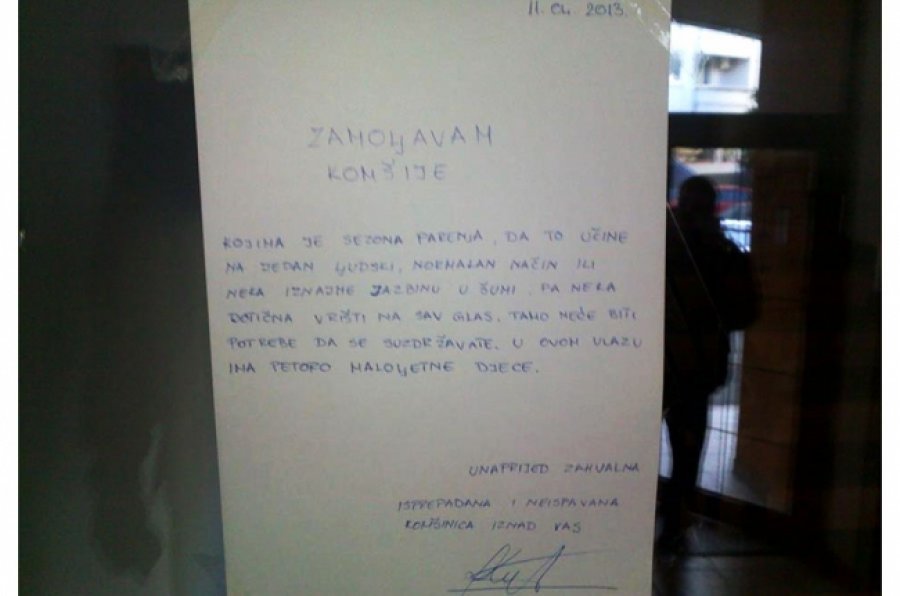 11. 04. 2013.
ZAMOLJAVAM
KOMŠIJE
KOJIMA JE SEZONA PARENJA, DA TO UČINE
NA JEDAN LJUDSKI, NORMALAN NAČIN ILI
NEKA IZNAJME JAZBINU U ŠUMI, PA NEKA
DOTIČNA VRIŠTI NA SAV GLAS. TAMO NEĆE BITI
POTREBE DA SE SUZDRŽAVATE. U OVOM ULAZU
IMA PETORO MALOLJETNE DJECE.
UNAPRIJED ZAHVALNA
ISPREPADANA I NEISPAVANA
KOMŠINICA IZNAD VAS